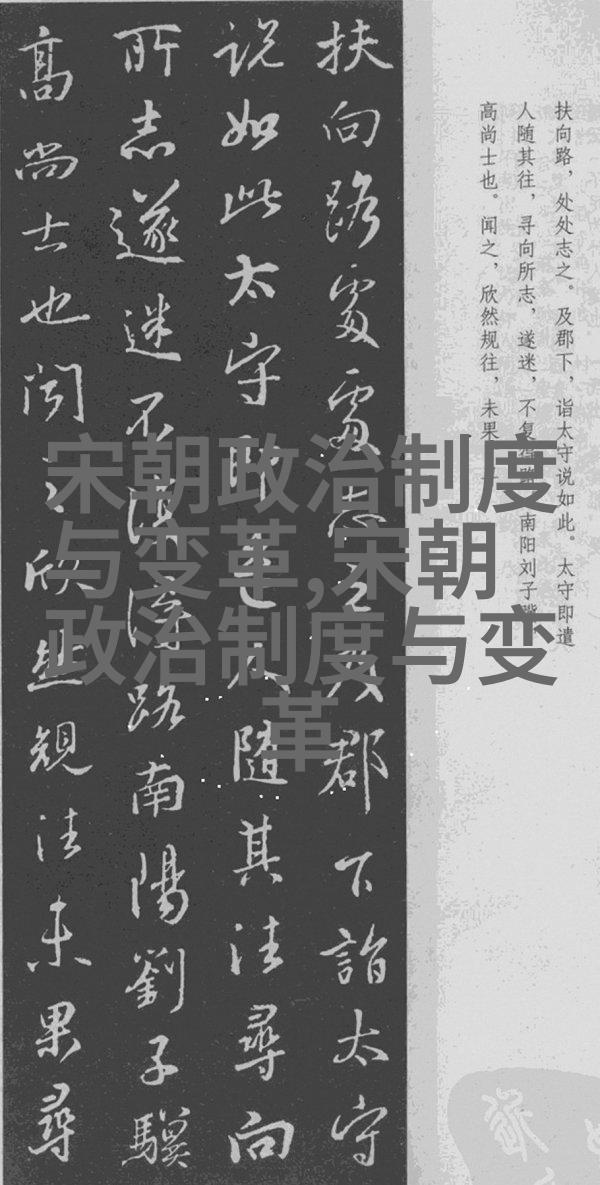 扶向路處處志之及郡下詣太守
说如此太守即遣人隨其往尋向
所志遂迷不復得路南陽劉子驥
高尚士也闻之欣然規往未果尋
扶向路，处处志之。及郡下，诣太守说如此。太守即遣
人随其往，寻向所志，遂迷，不复得路。南阳刘子骥
高尚士也。闻之，欣然规往，未果
宋朝政治制度
与变革,宋朝
政治制度与变
革